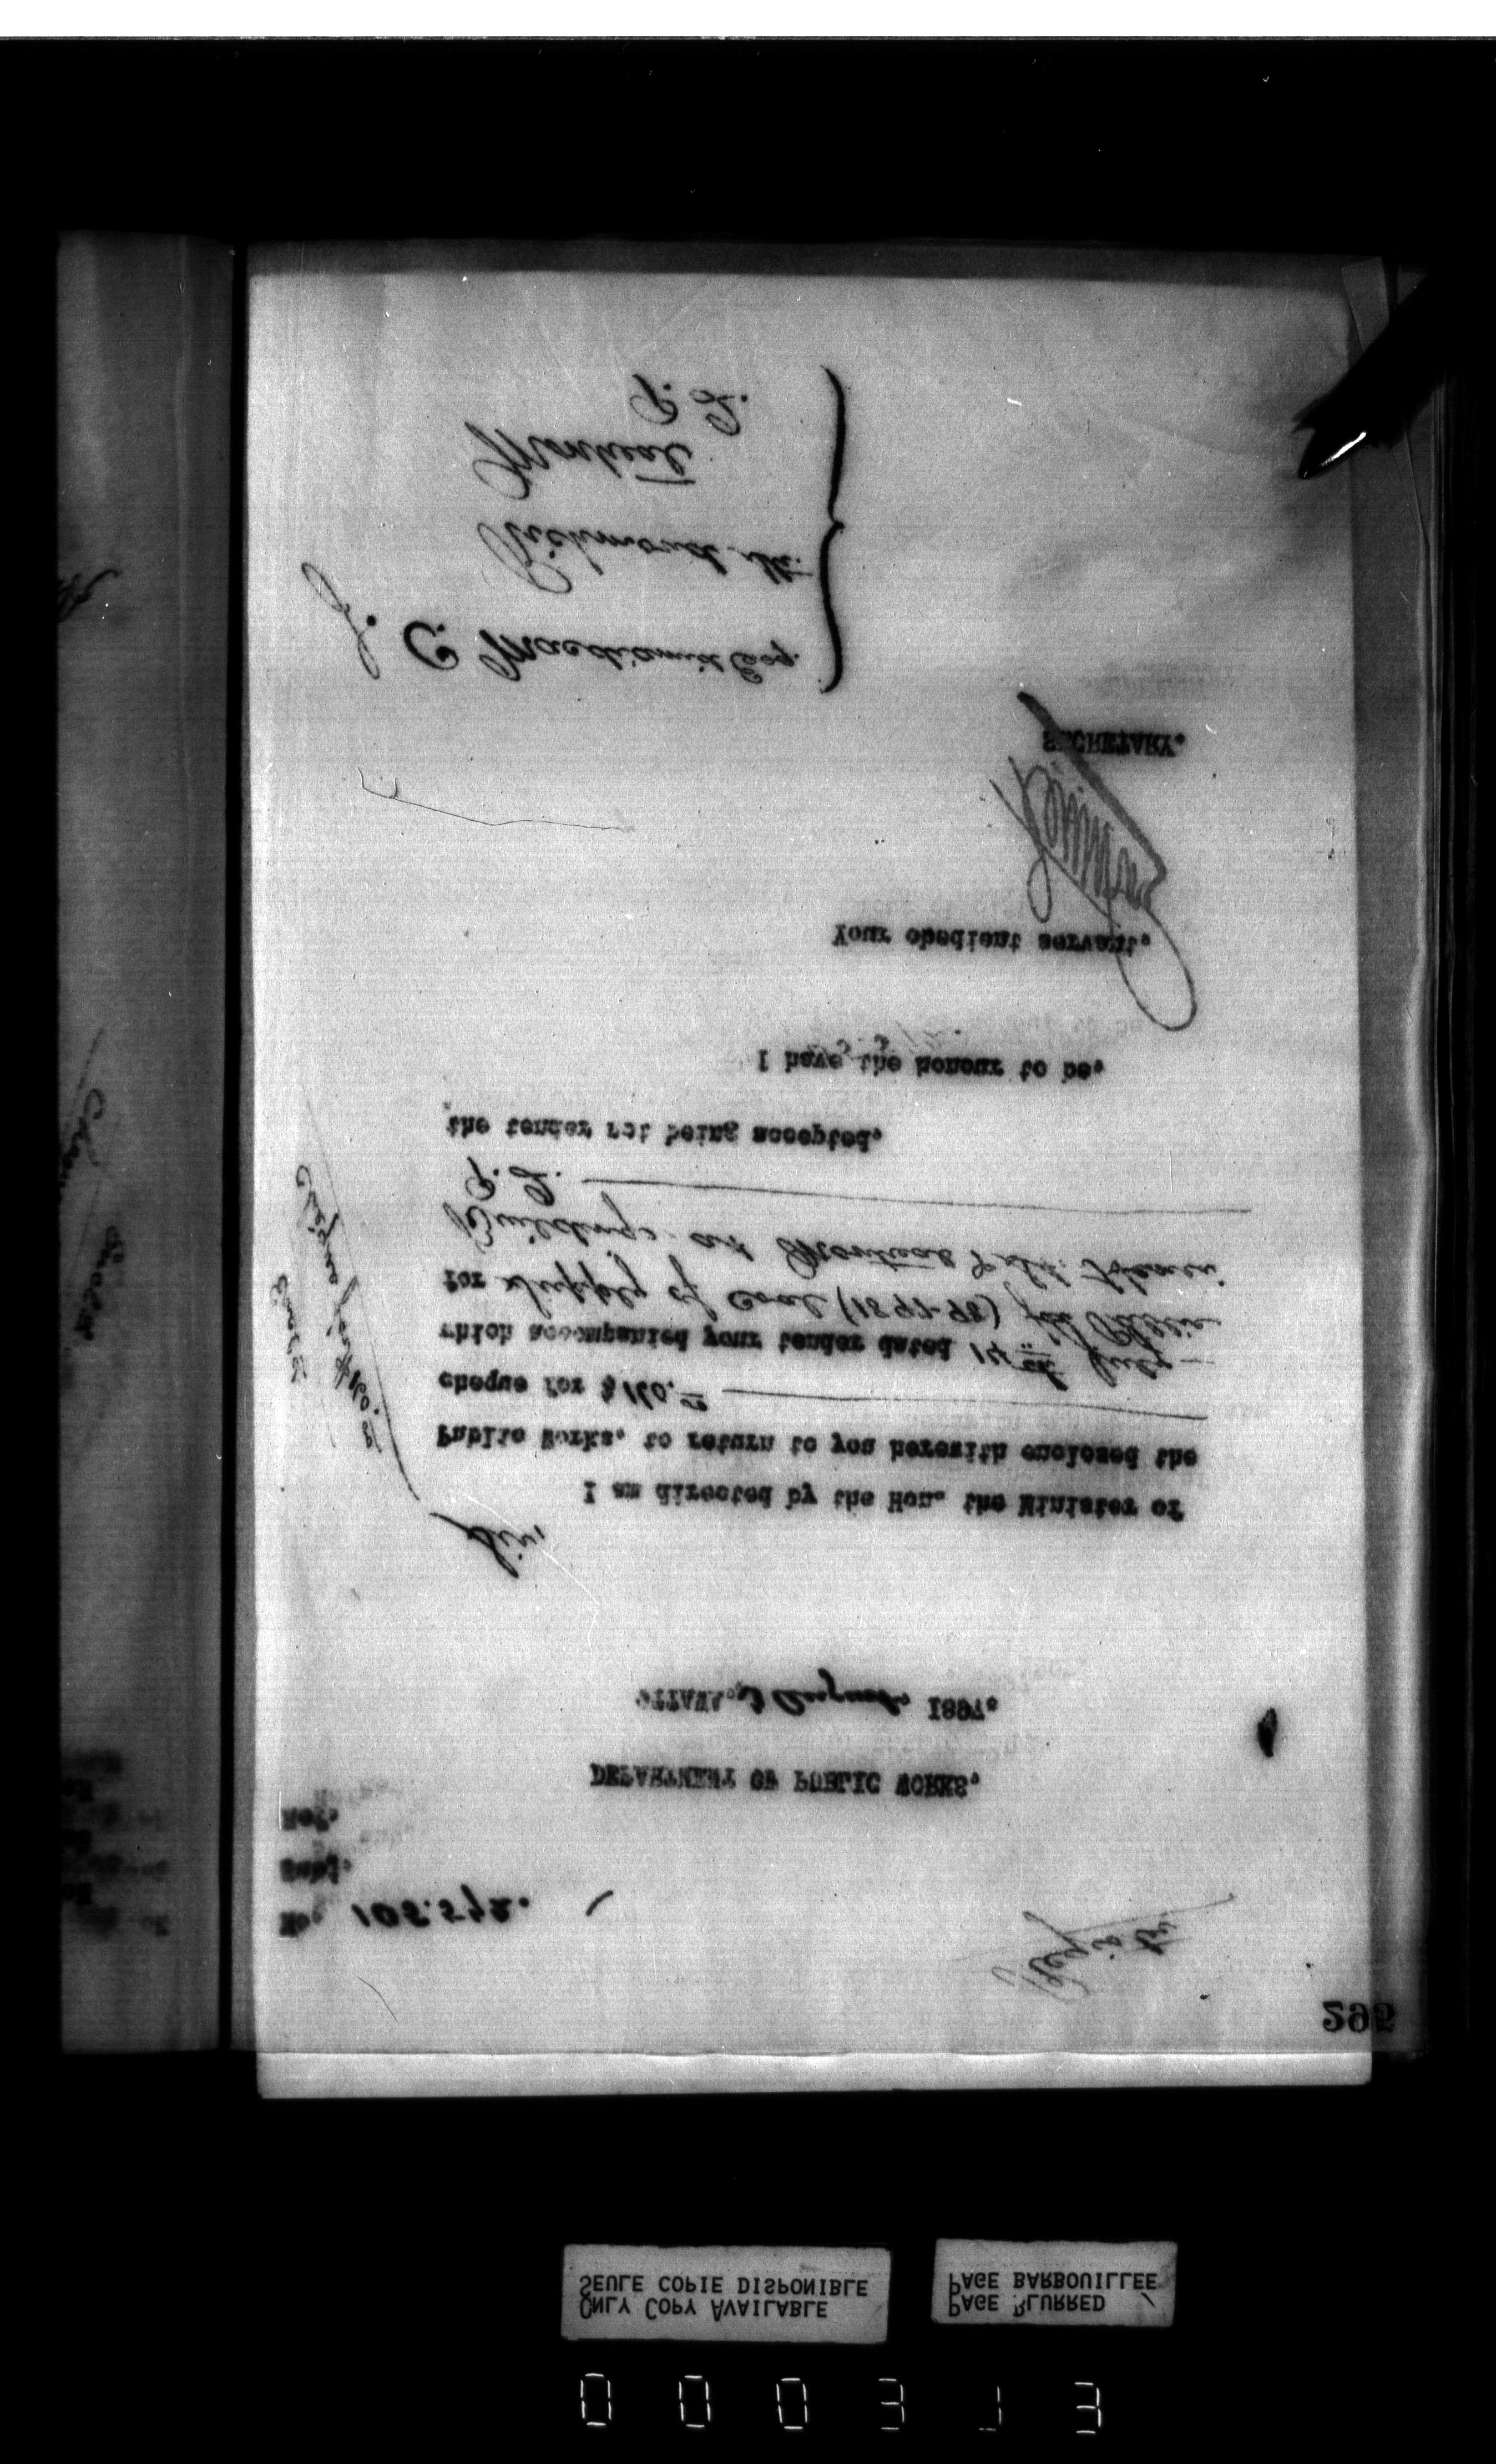 295
Regist
No. 105.572.
Subj.
Ref.
DEPARTMENT OF PUBLIC WORKS.
OTTAWA, 3 August, 1897.
Sir,
I am directed by the Hon. the Minister of
Public Works, to return to you herewith enclosed the
cheque for $160.—
which accompanied your tender dated 14th July
for supply of Coal (1897-98) for
Buildings at Montreal
P. Q.
the tender not being accepted.
I have the honour to be,
Your obedient servant,
SECRETARY.
J. C. Macdiarmid Esq.
Richmond St.
Montreal
P. Q.
Cheque for $160.
ONLY COPY AVAILABLE
SEULE COPIE DISPONIBLE
PAGE BLURRED
PAGE BARBOUILLEE
000313